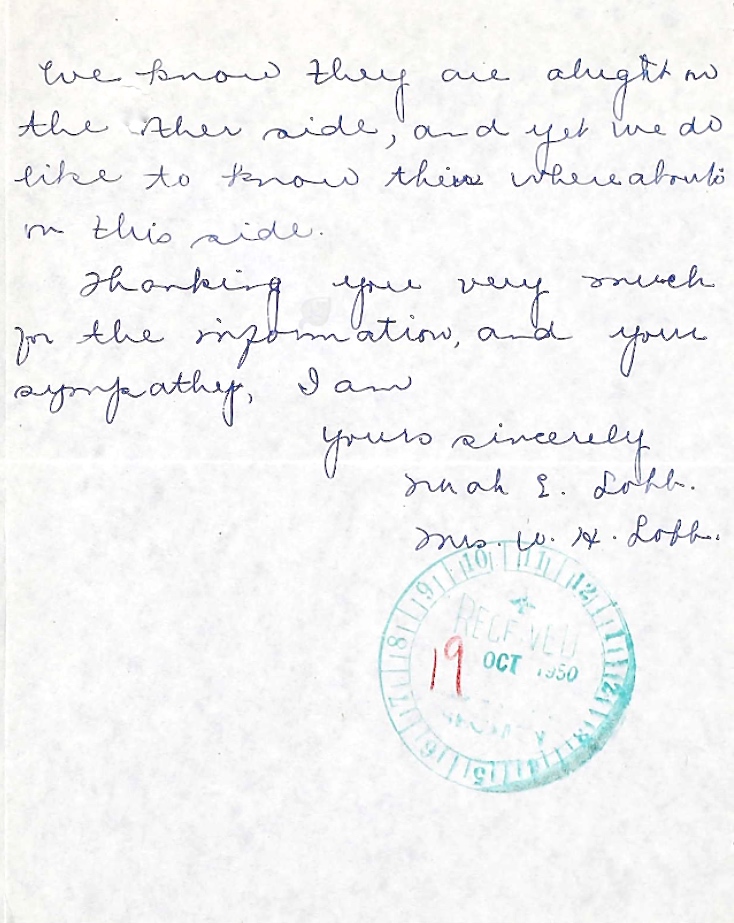 We know they are alright on
the other side, and yet we do
like to know their whereabouts
on this side.
Thanking you very much
for the information, and your
sympathy, I am
Yours sincerely
E. Lobb.
Mrs. W. H. Lobb.
10 11 12 1 2 3 4 5 6 7 8 9
RECEIVED
19 OCT 1950